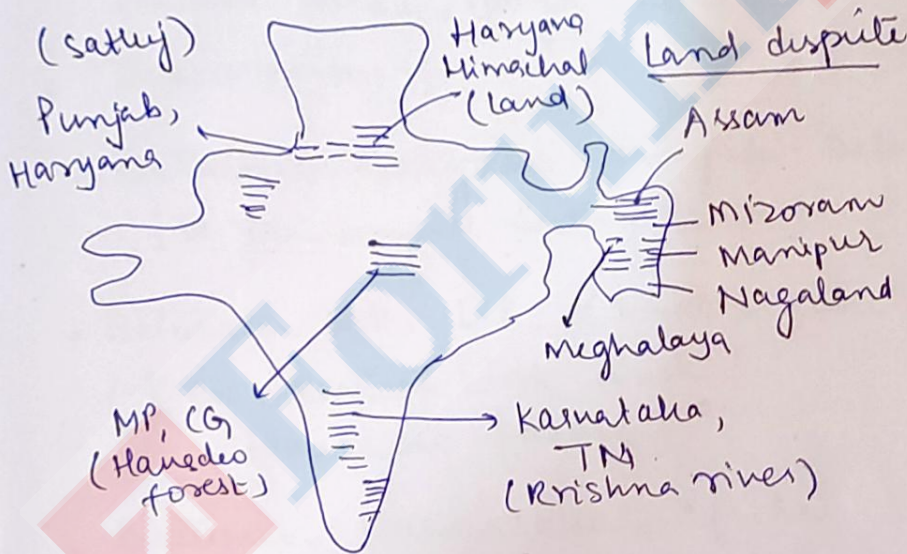 (Satluj)
Punjab,
Haryana
Haryana
Himachal
(land)
Land dispute
Assam
Mizoram
Manipur
Nagaland
Meghalaya
MP, CG
(Hansdeo
forest)
Karnataka,
TN
(Krishna river)
Forum